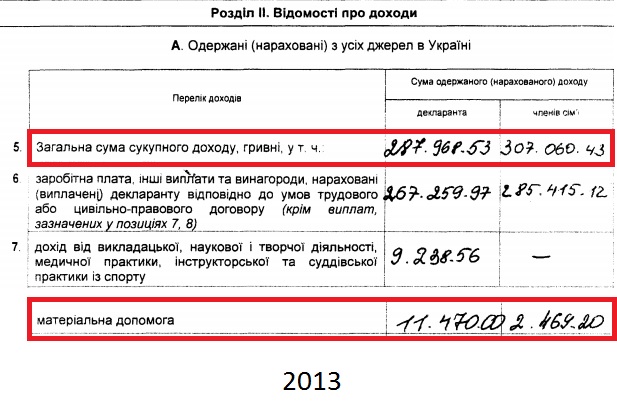 Розділ II. Відомості про доходи
А. Одержані (нараховані) з усіх джерел в Україні
Перелік доходів
Сума одержаного (нарахованого) доходу
декларанта
членів сім'ї
5. Загальна сума сукупного доходу, гривні, у т. ч.: 287.968.53 307.060.43
6 заробітна плата, інші виплати та винагороди, нараховані
(виплачені) декларанту відповідно до умов трудового 267.259.97 285.415.12
або цивільно-правового договору (крім виплат,
зазначених у позиціях 7, 8)
7. дохід від викладацької, наукової і творчої діяльності,
медичної практики, інструкторської та суддівської 9.238.56 —
практики із спорту
матеріальна допомога 11.470.00 2.469.20
2013